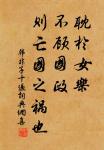 耽於女樂
不顧國政
則亡國之禍也
韓非子十過詞典網書